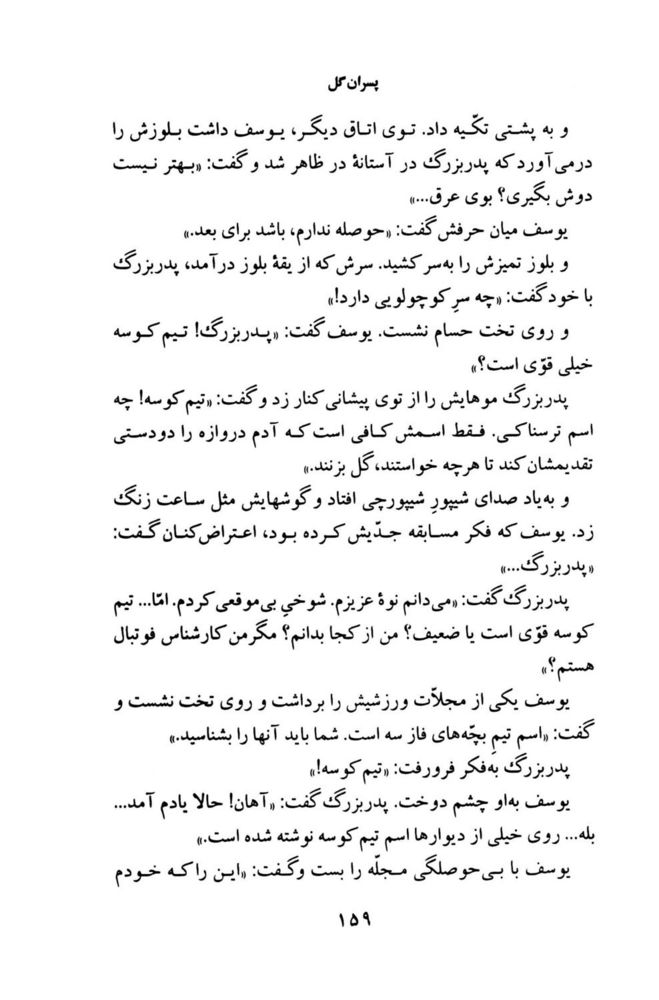 پسران گل
و به پشتی تکّیه داد. توی اتاق دیگر، یوسف داشت بلوزش را
درمی‌آورد که پدربزرگ در آستانهٔ در ظاهر شد و گفت: «بهتر نیست
دوش بگیری؟ بوی عرق...»
یوسف میان حرفش گفت: «حوصله ندارم، باشد برای بعد.»
و بلوز تمیزش را به‌سر کشید. سرش که از یقهٔ بلوز درآمد، پدربزرگ
با خود گفت: «چه سرِ کوچولویی دارد!»
و روی تخت حسام نشست. یوسف گفت: «پدربزرگ! تیم کوسه
خیلی قوّی است؟»
پدربزرگ موهایش را از توی پیشانی کنار زد و گفت: «تیم کوسه! چه
اسم ترسناکی. فقط اسمش کافی است که آدم دروازه را دودستی
تقدیمشان کند تا هرچه خواستند، گل بزنند.»
و به‌یاد صدای شیپورِ شیپورچی افتاد و گوشهایش مثل ساعت زنگ
زد. یوسف که فکر مسابقه جدّیش کرده بود، اعتراض‌کنان گفت:
«پدربزرگ...»
پدربزرگ گفت: «می‌دانم نوهٔ عزیزم. شوخیِ بی‌موقعی کردم. امّا... تیم
کوسه قوّی است یا ضعیف؟ من از کجا بدانم؟ مگر من کارشناس فوتبال
هستم؟»
یوسف یکی از مجلاّت ورزشیش را برداشت و روی تخت نشست و
گفت: «اسم تیمِ بچّه‌های فاز سه است. شما باید آنها را بشناسید.»
پدربزرگ به‌فکر فرورفت: «تیم کوسه!»
یوسف به‌او چشم دوخت. پدربزرگ گفت: «آهان! حالا یادم آمد...
بله... روی خیلی از دیوارها اسم تیم کوسه نوشته شده است.»
یوسف با بی‌حوصلگی مجلّه را بست و گفت: «این را که خودم
۱۵۹